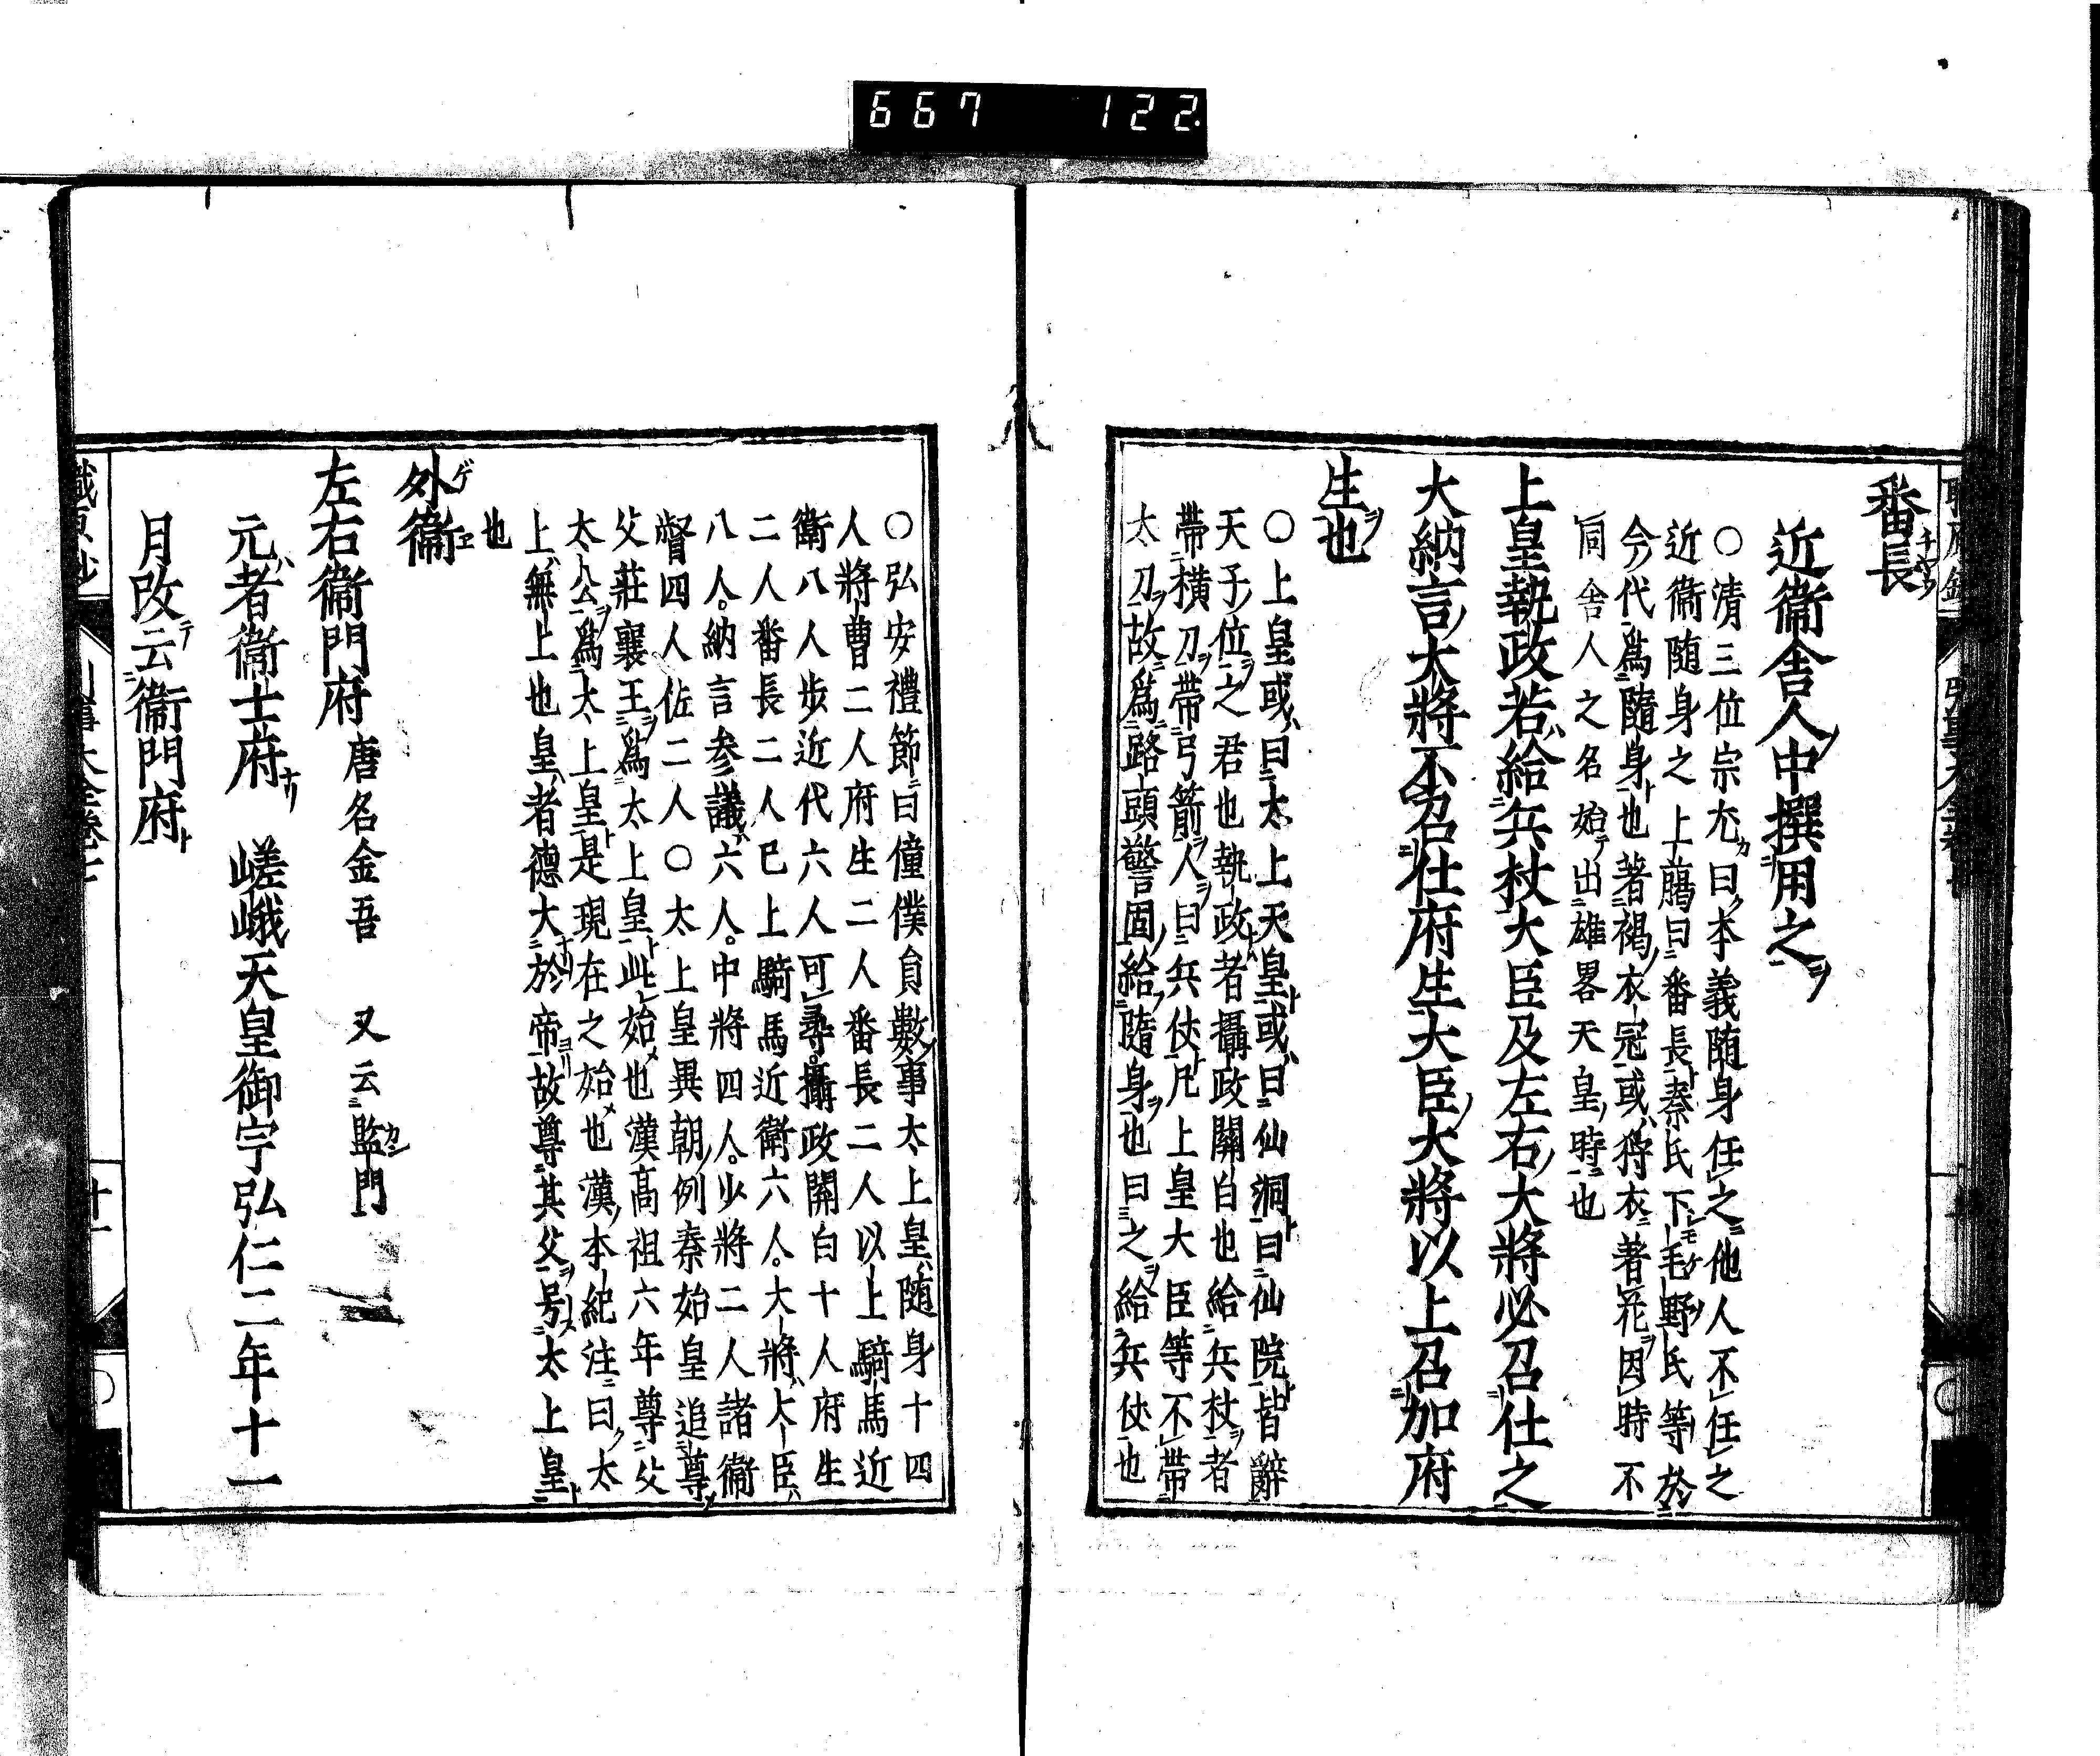 667 122
番長
近衞舎人中撰用之
○清三位宗尤曰本義随身任之他人不任之
近衞随身之上﨟曰番長秦氏下毛野氏等於
今代為隨身也著褐衣冠或狩衣著花因時不
同舎人之名始出雄畧天皇時也
上皇執政若給兵杖大臣及左右大將必召仕之
大納言大將不召仕府生大臣大將以上召加府
生也
○上皇或曰太上天皇或曰仙洞曰仙院皆辭
天子位之君也執政者攝政關白也給兵杖者
帶横刀帶弓箭人曰兵仗凡上皇大臣等不帶
太刀故為路頭警固給隨身也曰之給兵仗也
○弘安禮節曰僮僕員數事太上皇随身十四
人將曹二人府生二人番長二人以上騎馬近
衛八人歩近代六人可尋攝政關白十人府生
二人番長二人已上騎馬近衛六人大將大臣
八人納言参議六人中將四人少將二人諸衞
督四人佐二人○太上皇異朝例秦始皇追尊
父莊襄王為太上皇此始也漢高祖六年尊父
太公為太上皇是現在之始也漢本紀注曰太
上無上也皇者德大於帝故尊其父号太上皇
也
外衞
左右衞門府 唐名金吾 又云監門
元者衞士府 嵯峨天皇御宇弘仁二年十一
月改云衞門府
十一